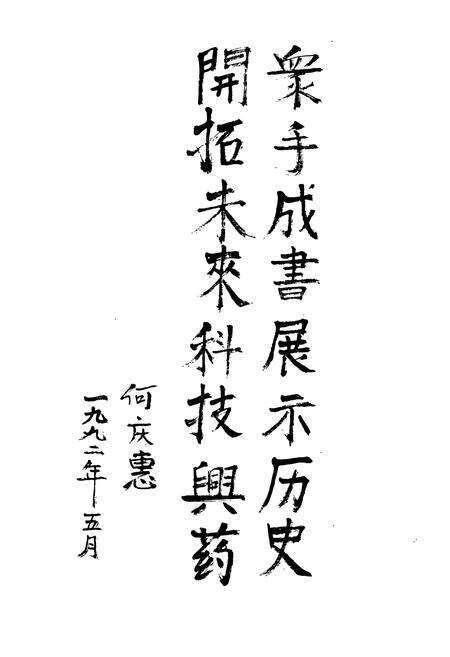 眾手成書展示历史
開拓未來科技興药
何庆惠
一九九二年五月